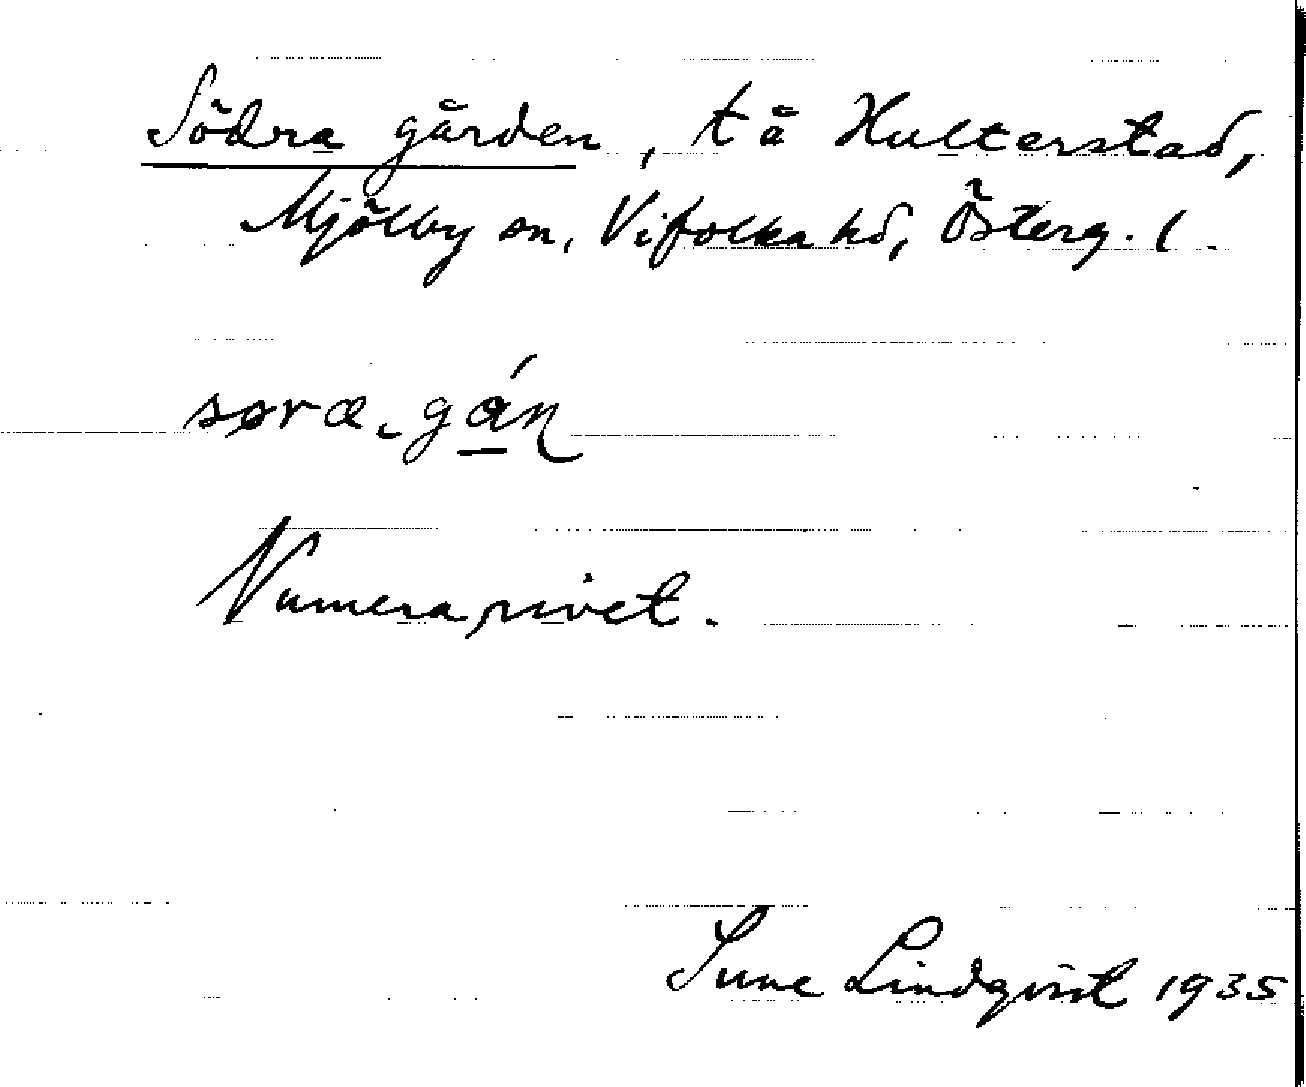 Södra gården, tå Hulterstad,
Mjölby sn, Vifolka hd, Österg. l.
søra-gán
Numera rivet.
Sune Lindqvist 1935